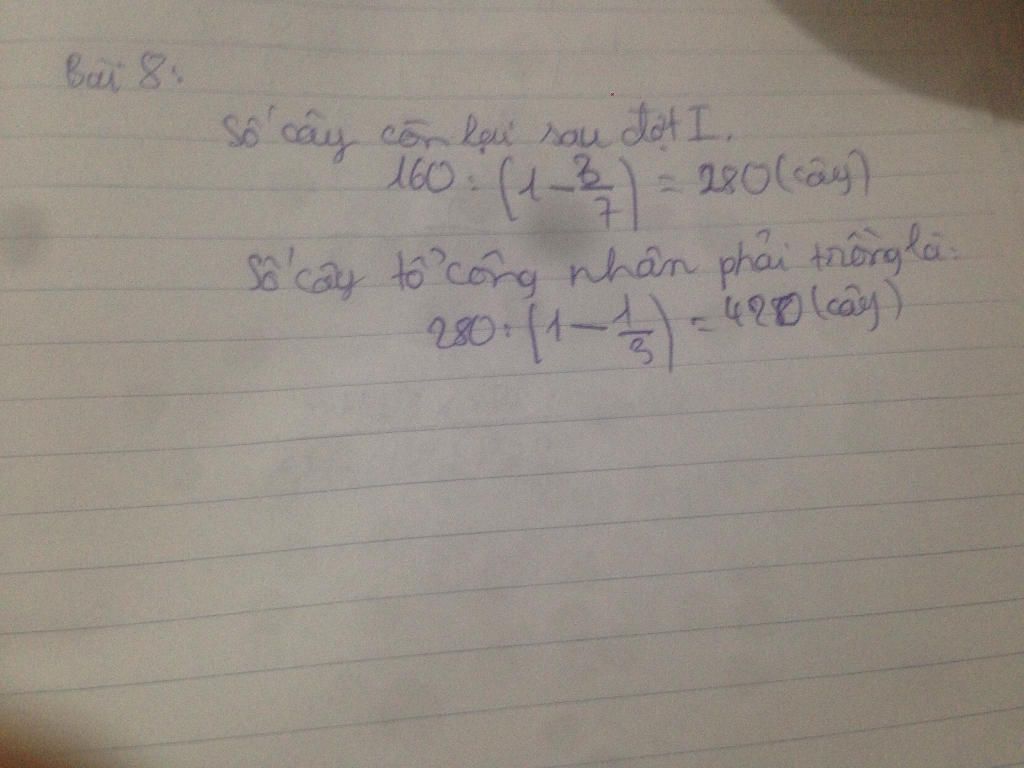 Bài 8:
Số cây còn lại sau đợt I.
160 : (1 - 3/7) = 280 (cây)
Số cây tổ công nhân phải trồng là:
280 : (1 - 1/3) = 420 (cây)